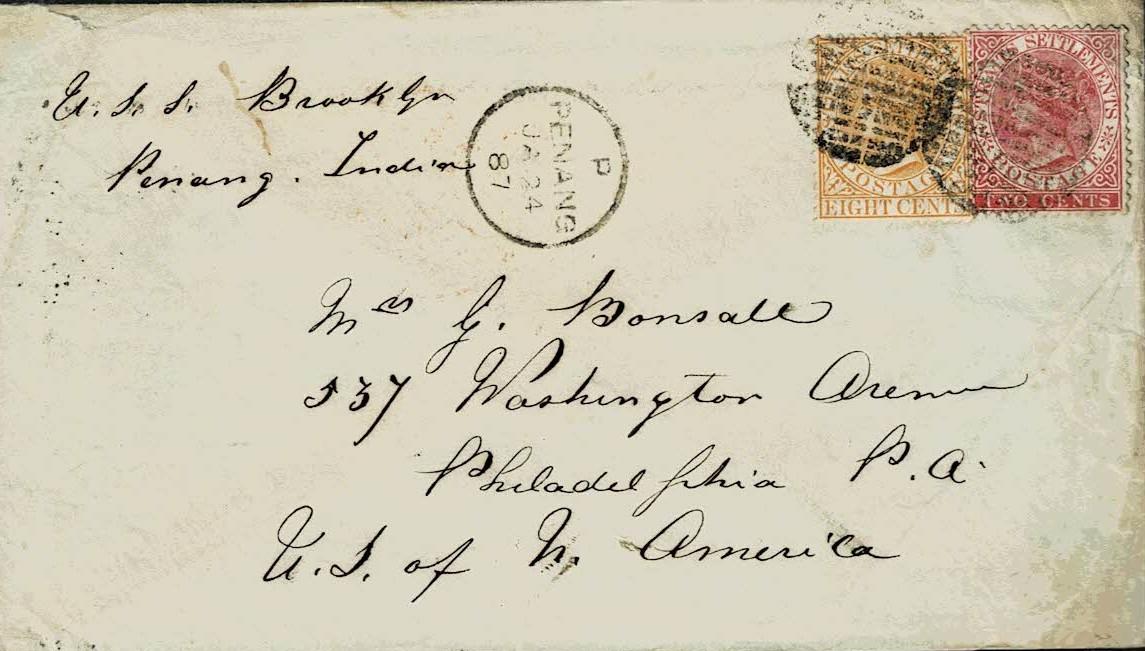 U.S.S. Brooklyn
Penang. India
P
PENANG
JA 24
87
POSTAGE
EIGHT CENTS
STRAITS SETTLEMENTS
POSTAGE
TWO CENTS
Mrs G. Bonsall
537 Washington Avenue
Philadelphia P.A.
U.S. of N. America